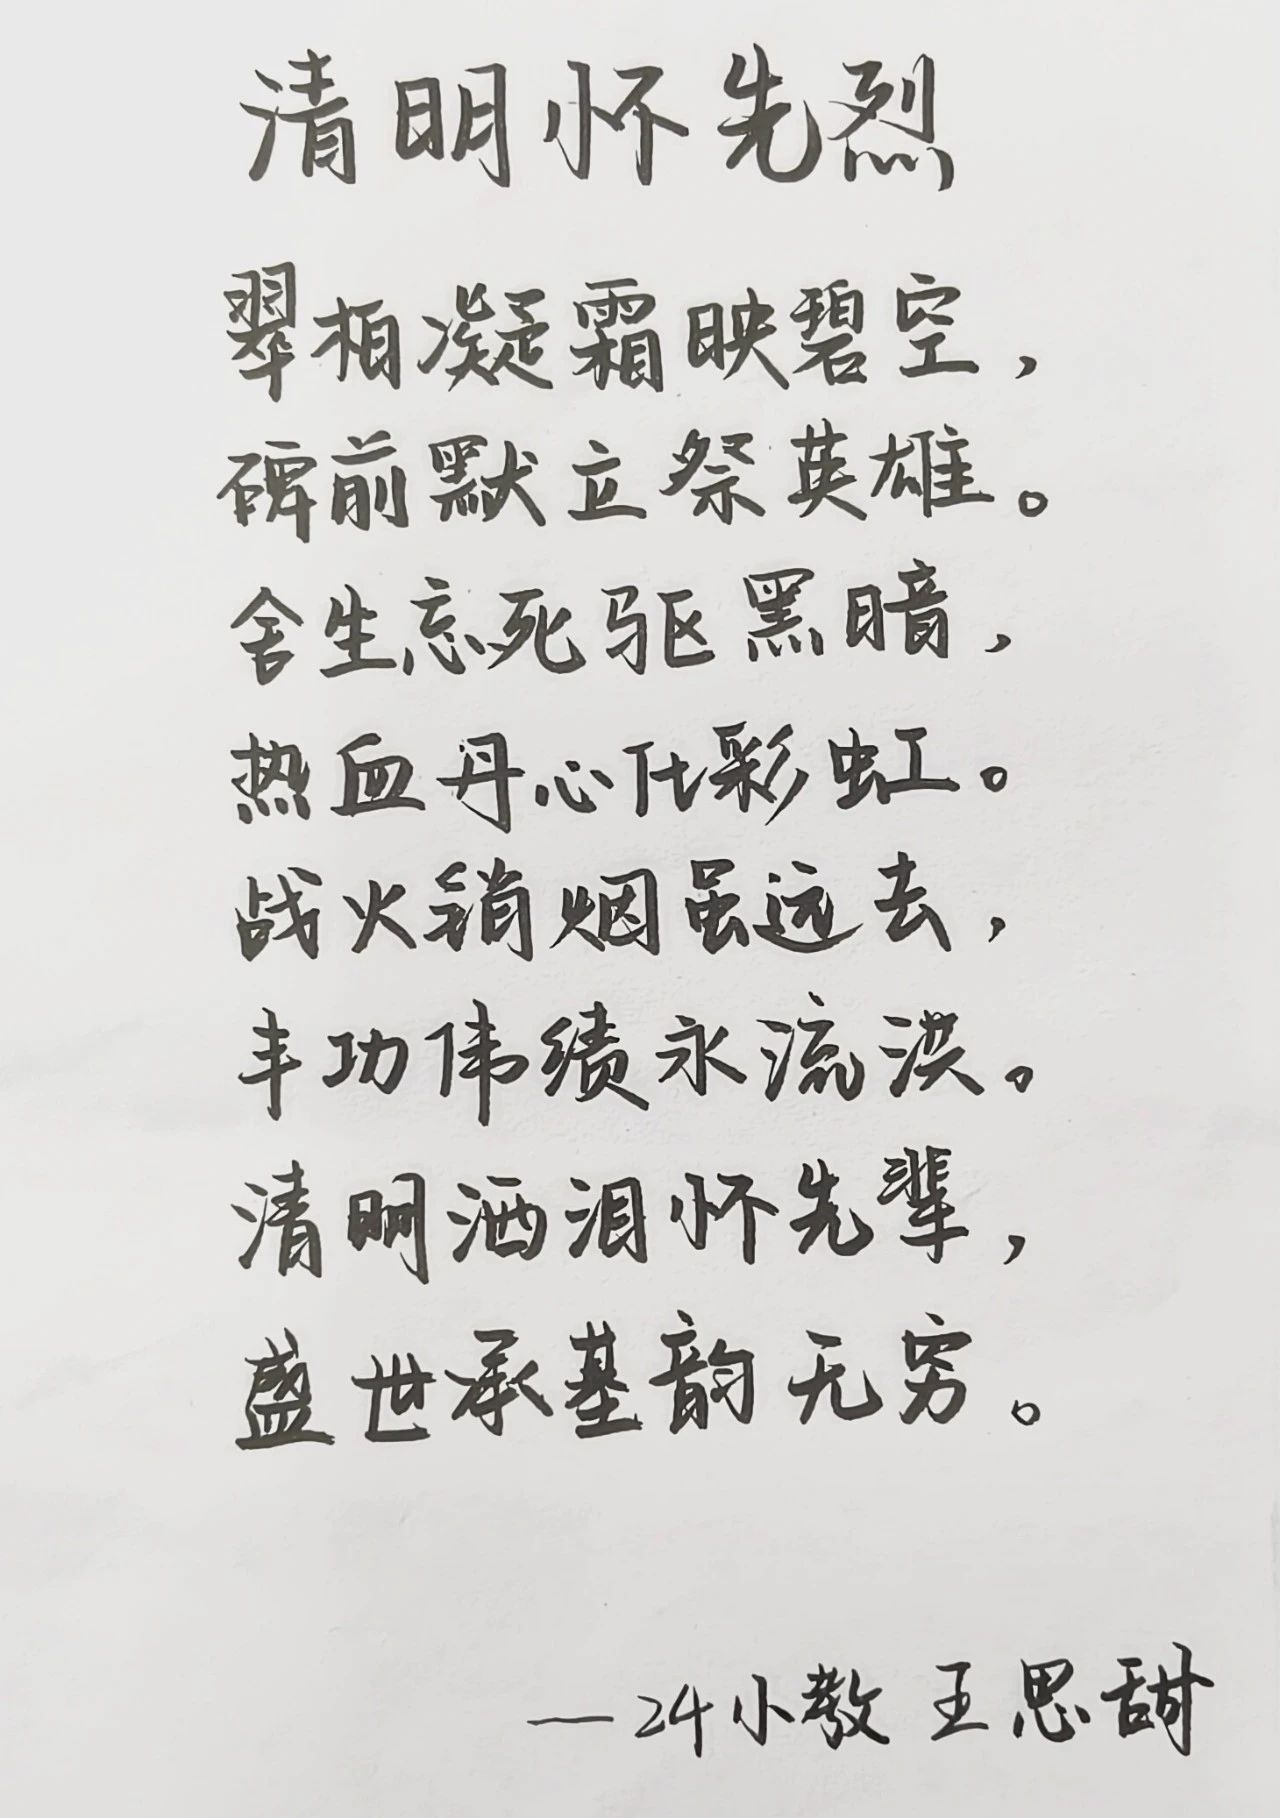 清明怀先烈
翠柏凝霜映碧空，
碑前默立祭英雄。
舍生忘死驱黑暗，
热血丹心化彩虹。
战火销烟虽远去，
丰功伟绩永流洪。
清明洒泪怀先辈，
盛世承基韵无穷。
—24小教 王思甜